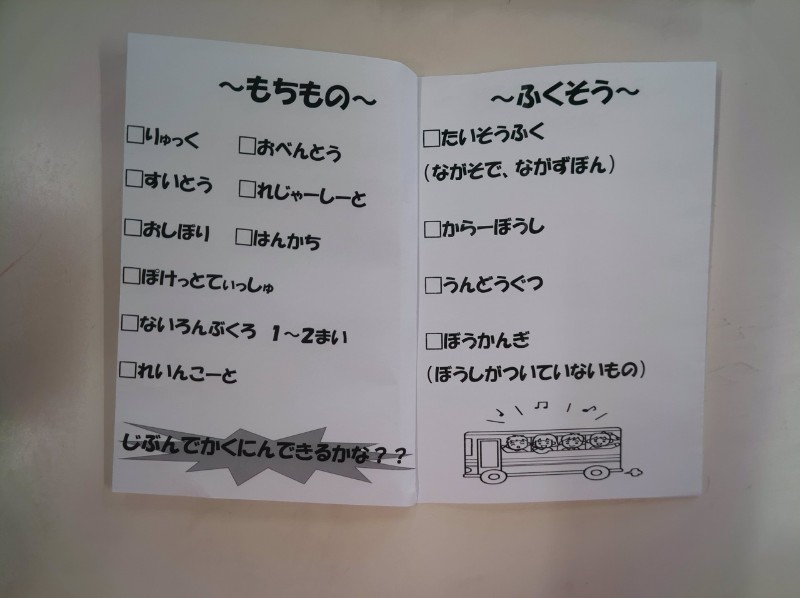 ～もちもの～
□りゅっく □おべんとう
□すいとう □れじゃーしーと
□おしぼり □はんかち
□ぽけっとてぃっしゅ
□ないろんぶくろ 1～2まい
□れいんこーと
じぶんでかくにんできるかな？？
～ふくそう～
□たいそうふく
（ながそで、ながずぼん）
□からーぼうし
□うんどうぐつ
□ぼうかんぎ
（ぼうしがついていないもの）